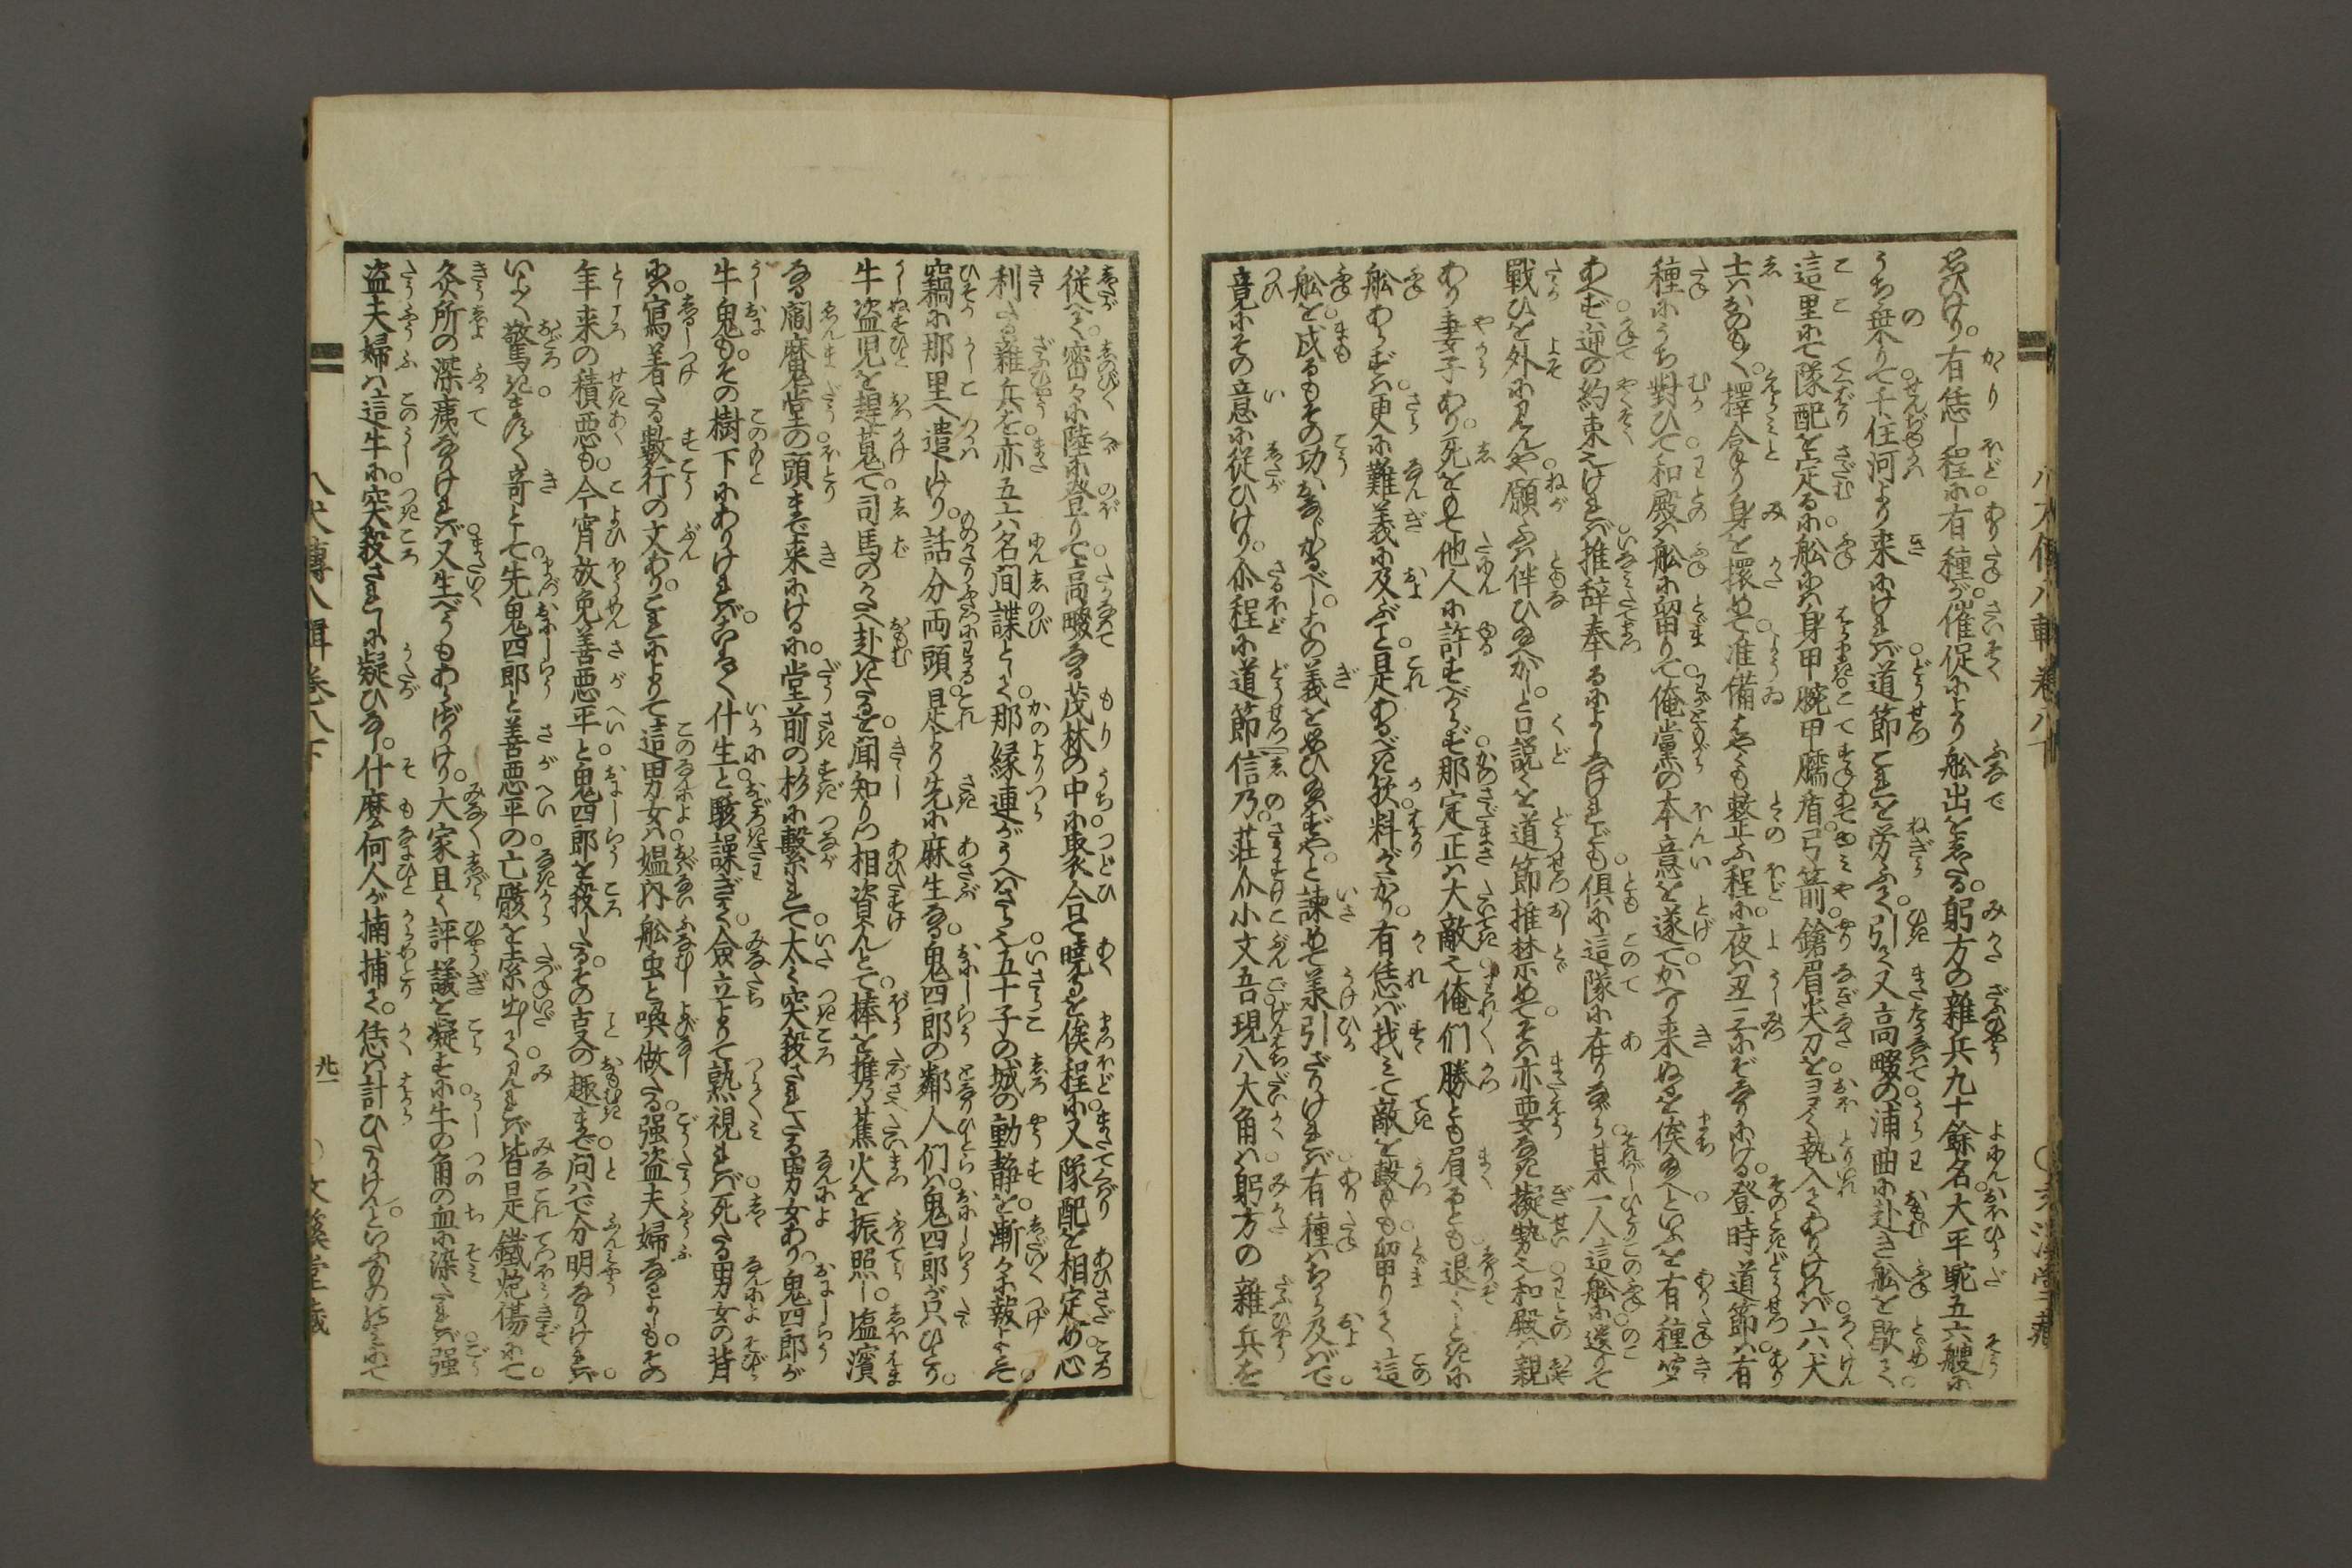 名ひけり。有恁し程に有種が催促により舩出をしたる。躬方の雑兵九十餘名大平駝五六艘に
うち乗りて千住河より来にければ道節これを労ふて。引て又高畷の浦曲に赴き舩を歇して
這里にて隊配を定るに舩には身甲腕甲臑盾弓箭鎗眉尖刀を執入てありければ六犬
士はおのもおのも。擇合り身を擐めて准備はやくも整ふ程に。夜は丑三にぞなりにける。登時道節は有
種にうち對ひて和殿は舩に留りて俺黨の本意を遂てかへり来ぬを俟給へといふを有種
あへず迎の約束之ければ推辞奉るによしなけれども倶に這隊に在りながら某一人這舩に送りそ
戰ひを外に見んや願ふは伴ひ給へかしと口説くを道節推禁めてそは亦要なき擬勢之和殿は親
あり妻子あり。死をもて他人に許すべからず那定正は大敵之俺們勝とも負るとも退くときに
舩あらずは更に難義に及ぶべし。是あるべき欤料がたかり。有恁ば找みて敵を撃も留りて這
舩を。戍るもその功かはるべからずこの義を思ひ給ずやと諫めて羕引ざりければ有種はちから及ばで。
竟にその意に従ひけり。尒程に道節信乃。莊介小文吾現八大角は躬方の雑兵を
八犬傳八輯巻八下
従へて。密々に陸に登りて高畷なる茂林の中に裒合て曉るを俟程に又隊配を相定め心
利たる雜兵を亦五六名間諜として。那縁連がうへはさら之五十子の城の動静を漸々に報よとて。
竊に那里へ遣しけり。話分両頭是より先に麻生なる。鬼四郎の鄰人們は鬼四郎が只ひとり。
牛盗児を趕蒐て司馬のかたへ赴きたるを聞知りつ相資んとて。棒を携乃蕉火を振照し。塩濱
なる閻魔堂の頭まで来にけるに。堂前の杉に繋れて太く突殺されたる男女あり。鬼四郎が
牛鬼も。その樹下にありければこはいかに什生と駭譟ぎて僉立よりて熟視れば死たる男女の背
には。寫着たる數行の文あり。これによりて這男女は媼内舩虫と喚做たる強盗夫婦なるよしも。その
年来の積悪も今宵放免善悪平と鬼四郎を殺したる。その言の趣まで問はで分明なりければ
いよいよ驚きますます奇として先鬼四郎と善悪平の亡骸を索出して見れば皆是鐵炮傷にて
灸所の深痍なりければ又生べうもあらざりけり。大家且く評議を凝すに牛の角の血に染たれば強
盗夫婦は這牛に。突殺されしに疑ひなし。什麼何人が捕捕て。恁は計ひたりけんといふもの
八犬傳八輯巻八下
廿一
文溪堂藏